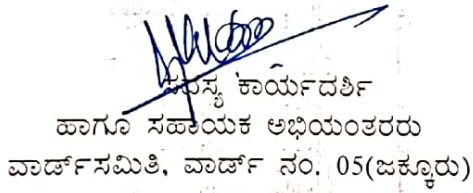 ಸದಸ್ಯ ಕಾರ್ಯದರ್ಶಿ
ಹಾಗೂ ಸಹಾಯಕ ಅಭಿಯಂತರರು
ವಾರ್ಡ್‌ಸಮಿತಿ, ವಾರ್ಡ್ ನಂ. 05(ಜಕ್ಕೂರು)